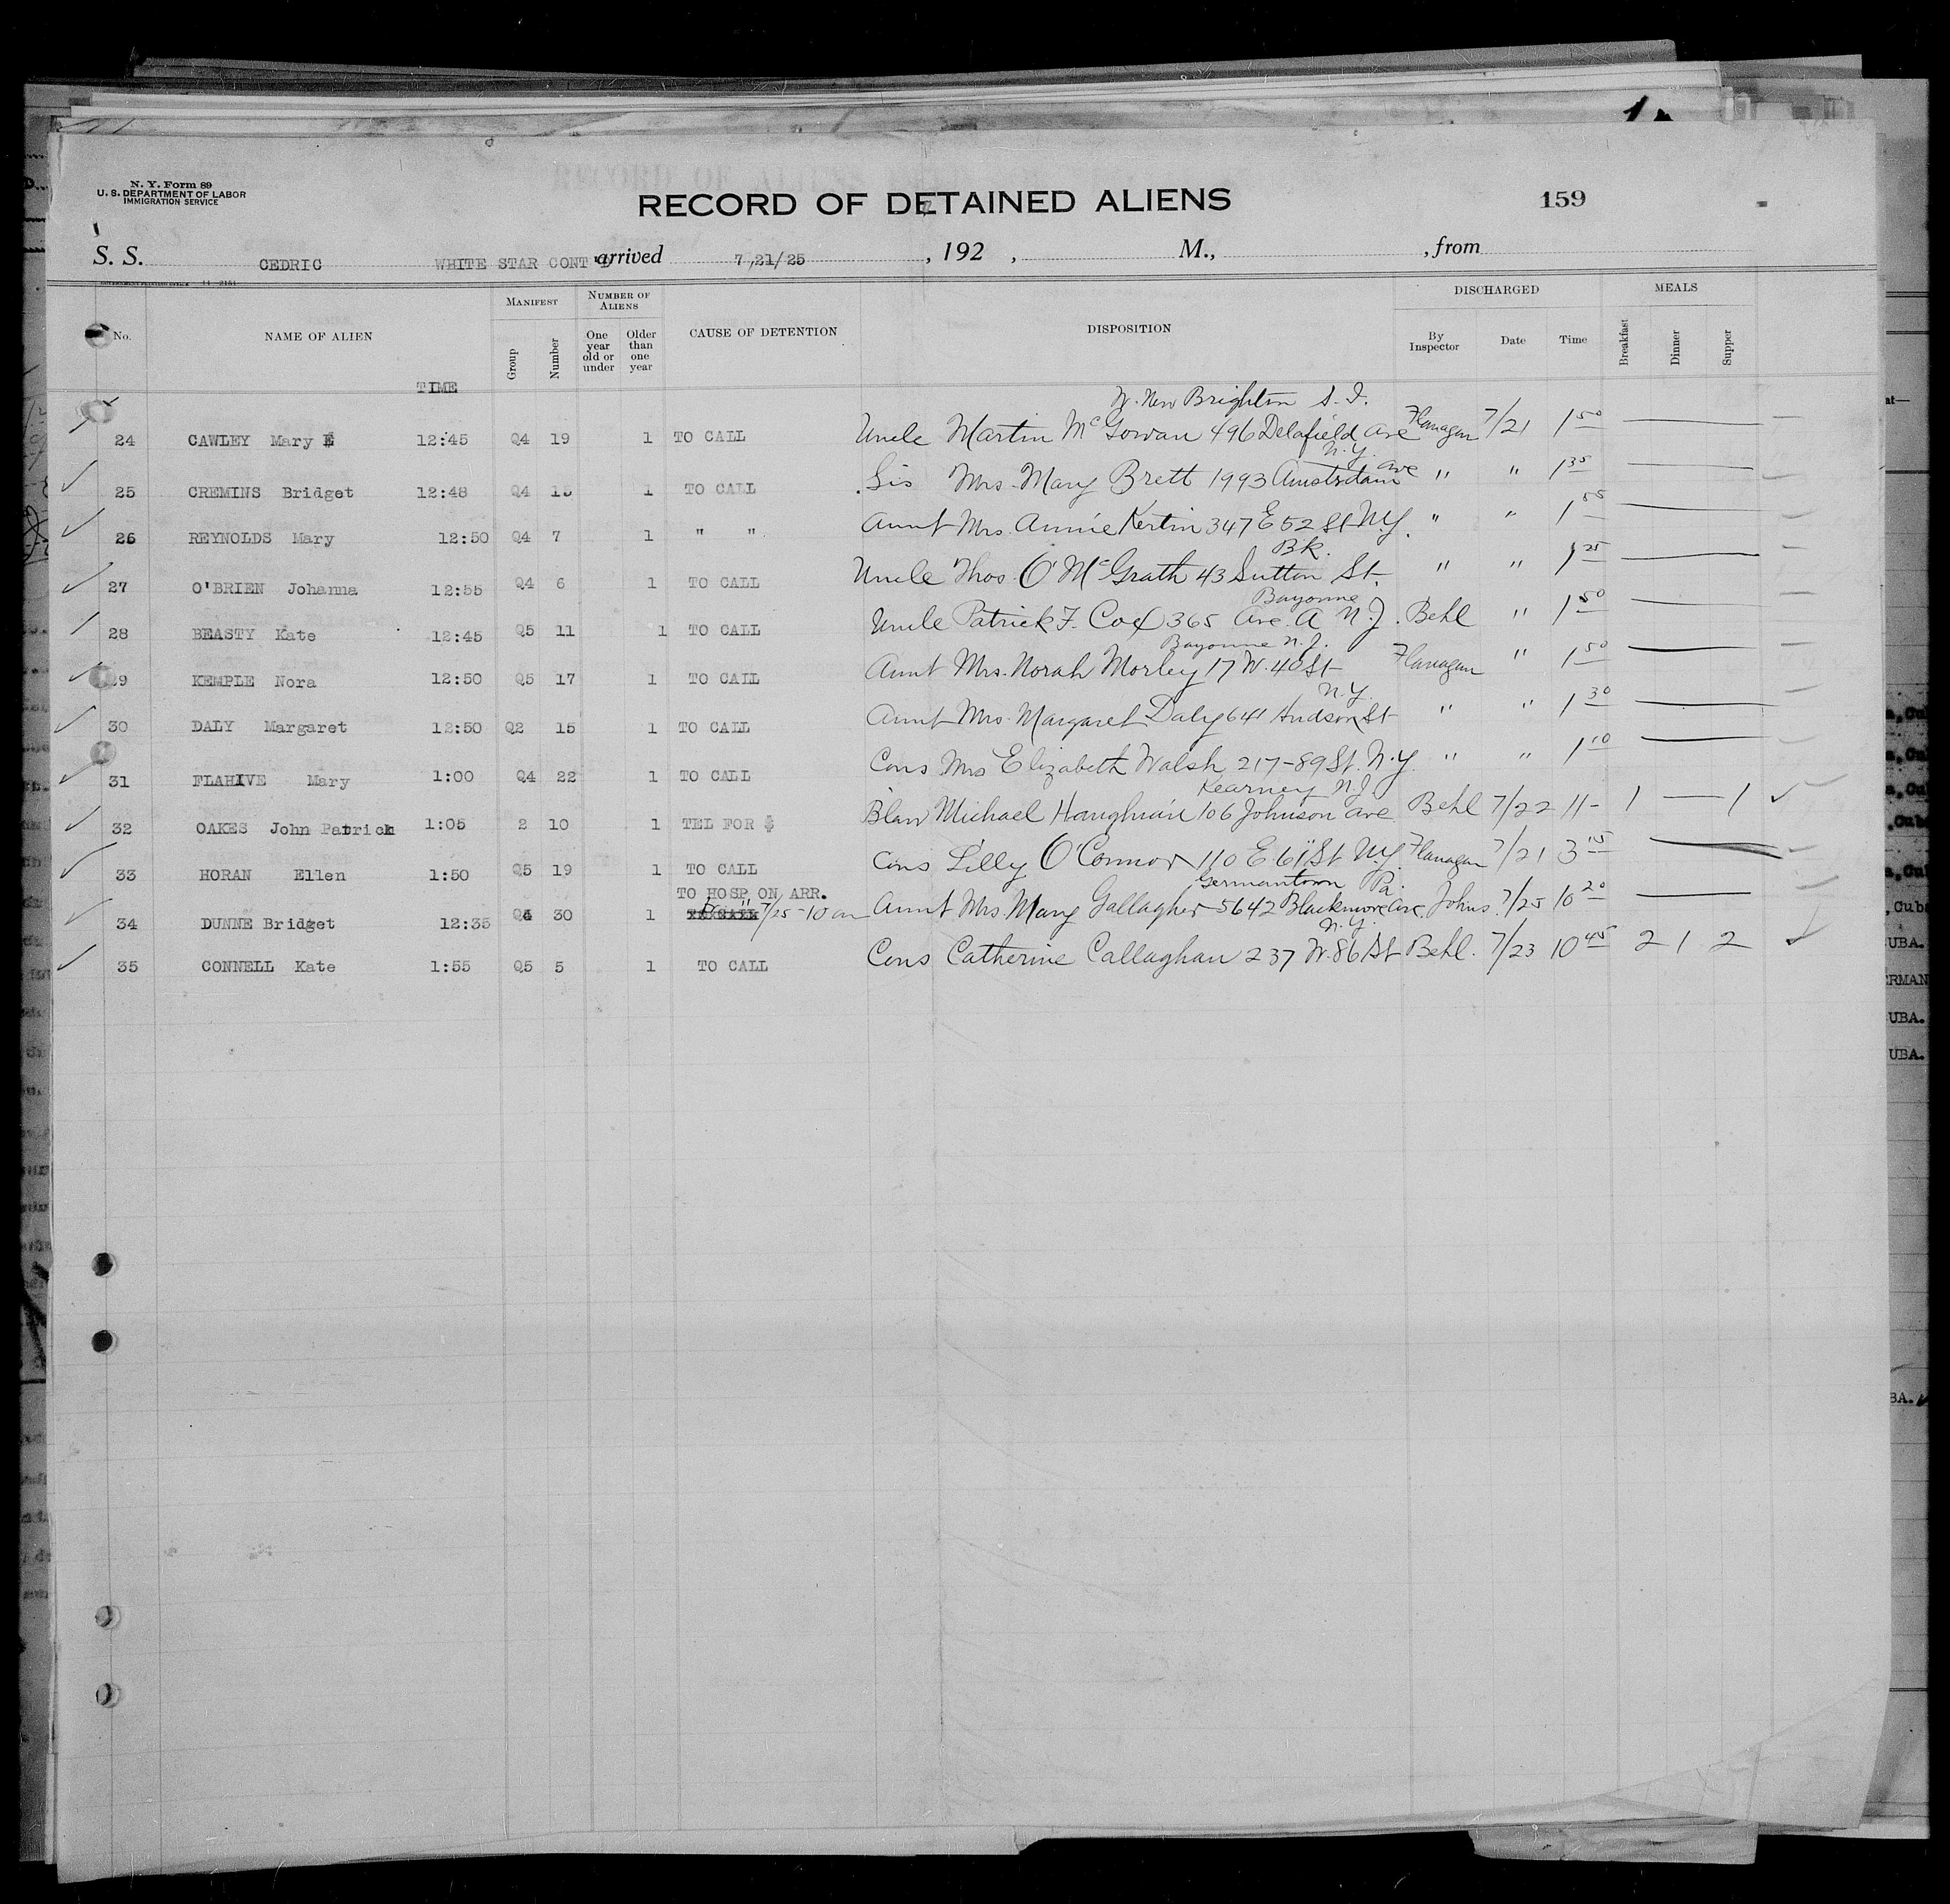 N. Y. Form 89
U. S. DEPARTMENT OF LABOR
IMMIGRATION SERVICE
RECORD OF DETAINED ALIENS
159
S. S. CEDRIC WHITE STAR CONT'D arrived 7,21/25 , 192 , M., , from
MANIFEST NUMBER OF ALIENS DISCHARGED MEALS
No. NAME OF ALIEN TIME Group Number One year old or under Older than one year CAUSE OF DETENTION DISPOSITION By Inspector Date Time Breakfast Dinner Supper
W. New Brighton S. I.
24 CAWLEY Mary E 12:45 Q4 19 1 TO CALL Uncle Martin McGowan 496 Delafield Ave Flanagan 7/21 1 50
N.Y.
25 CREMINS Bridget 12:48 Q4 15 1 TO CALL Sis Mrs. Mary Brett 1993 Amstrdam Ave " " 1 35
26 REYNOLDS Mary 12:50 Q4 7 1 " " Aunt Mrs. Annie Kertin 347 E 52 St N.Y. " " 1 55
Bk.
27 O'BRIEN Johanna 12:55 Q4 6 1 TO CALL Uncle Thos. O' McGrath 43 Sutton St. " " 1 25
Bayonne
28 BEASTY Kate 12:45 Q5 11 1 TO CALL Uncle Patrick F. Cox 365 Ave. A N.J. Behl " 1 50
Bayonne N.J.
29 KEMPLE Nora 12:50 Q5 17 1 TO CALL Aunt Mrs. Norah Morley 17 W. 40 St Flanagan " 1 50
N.Y.
30 DALY Margaret 12:50 Q2 15 1 TO CALL Aunt Mrs. Margaret Daly 641 Hudson St " " 1 30
31 FLAHIVE Mary 1:00 Q4 22 1 TO CALL Cons Mrs Elizabeth Walsh 217-89 St. N.Y. " " 1 10
Kearney N.J.
32 OAKES John Patrick 1:05 2 10 1 TEL FOR $ Blaw Michael Houghnan 106 Johnson Ave Behl 7/22 11- 1 — 1
33 HORAN Ellen 1:50 Q5 19 1 TO CALL Cons Lilly O'Connor 110 E 61 St N.Y. Flanagan 7/21 3 15
TO HOSP ON ARR. Germantown Pa.
34 DUNNE Bridget 12:35 Q4 30 1 7/25-10 am Aunt Mrs. Mary Gallagher 5642 Blackmore Ave. Johns 7/25 10 20
N.Y.
35 CONNELL Kate 1:55 Q5 5 1 TO CALL Cons Catherine Callaghan 237 W. 86 St Behl. 7/23 10 45 2 1 2